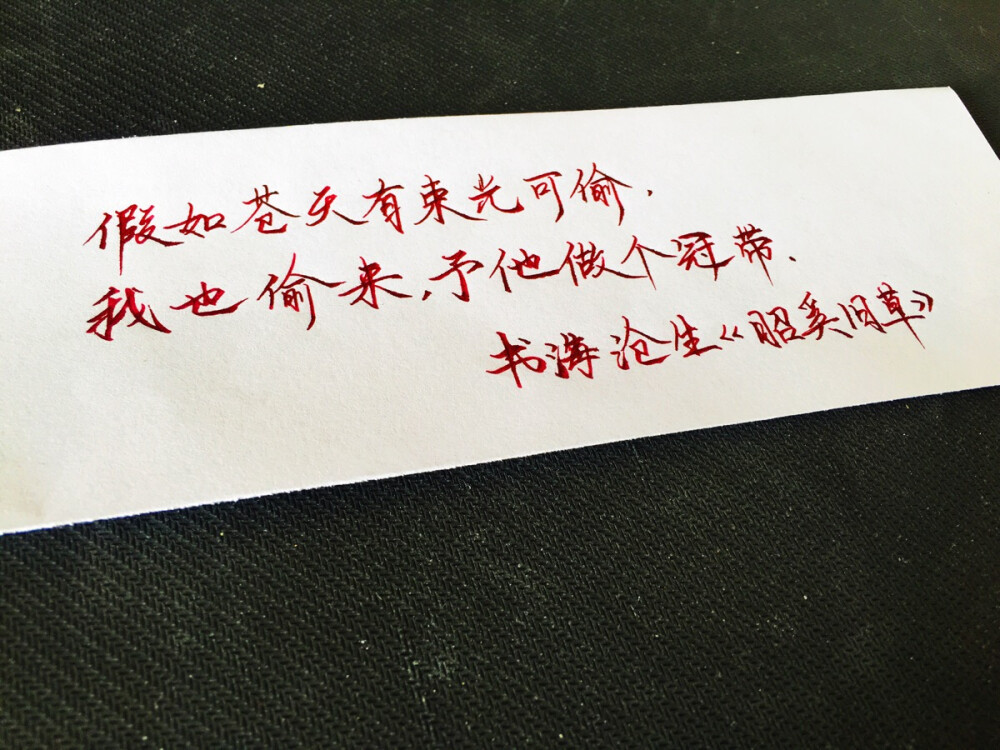 假如苍天有束光可偷,
我也偷来,予他做个冠带.
书海沧生《昭奚旧草》